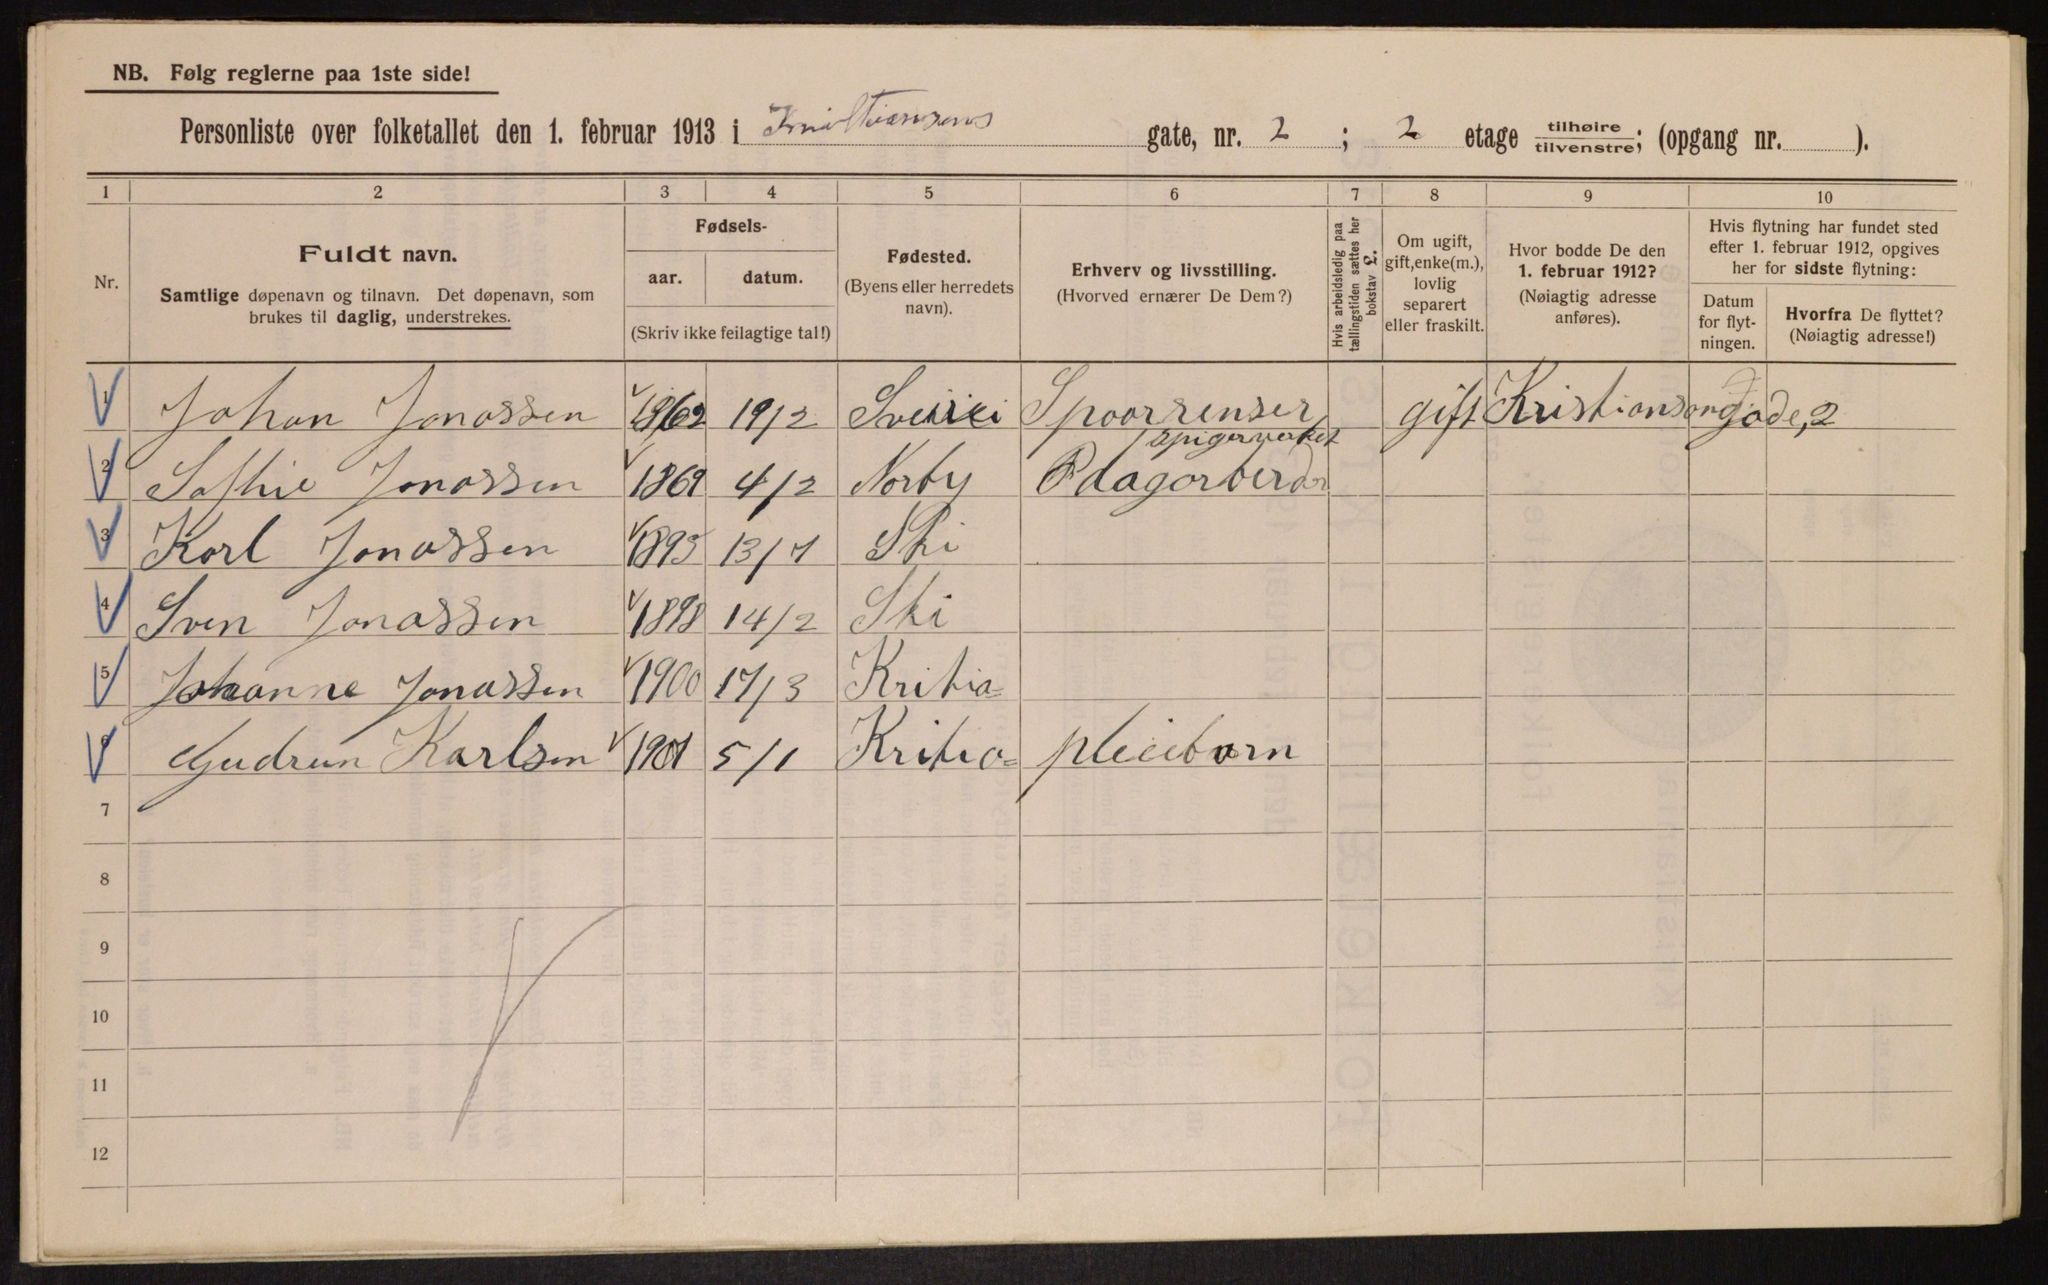 NB. Følg reglerne paa 1ste side!
Personliste over folketallet den 1. februar 1913 i Kristiansens gate, nr. 2 ; 2 etage tilhøire/tilvenstre; (opgang nr. ).
1 2 3 4 5 6 7 8 9 10
Nr.
Fuldt navn.
Samtlige døpenavn og tilnavn. Det døpenavn, som
brukes til daglig, understrekes.
Fødsels-
aar. datum.
(Skriv ikke feilagtige tal!)
Fødested.
(Byens eller herredets
navn).
Erhverv og livsstilling.
(Hvorved ernærer De Dem?)
Hvis arbeidsledig paa
tællingstiden sættes her
bokstav L.
Om ugift,
gift, enke(m.),
lovlig
separert
eller fraskilt.
Hvor bodde De den
1. februar 1912?
(Nøiagtig adresse
anføres).
Hvis flytning har fundet sted
efter 1. februar 1912, opgives
her for sidste flytning:
Datum
for flyt-
ningen.
Hvorfra De flyttet?
(Nøiagtig adresse!)
1 Johan Jonassen 1862 19/2 Spoorrenser gift Kristiansens Gade, 2
Spigerverket
2 Sofhie Jonassen 1869 4/2 Norby
3 Karl Jonassen 1895 13/7 Ski
4 Sven Jonassen 1898 14/2 Ski
5 Johanne Jonassen 1900 17/3 Kritia=
6 Gudrun Karlsen 1901 5/1 Kritia= pleiebarn
7
8
9
10
11
12